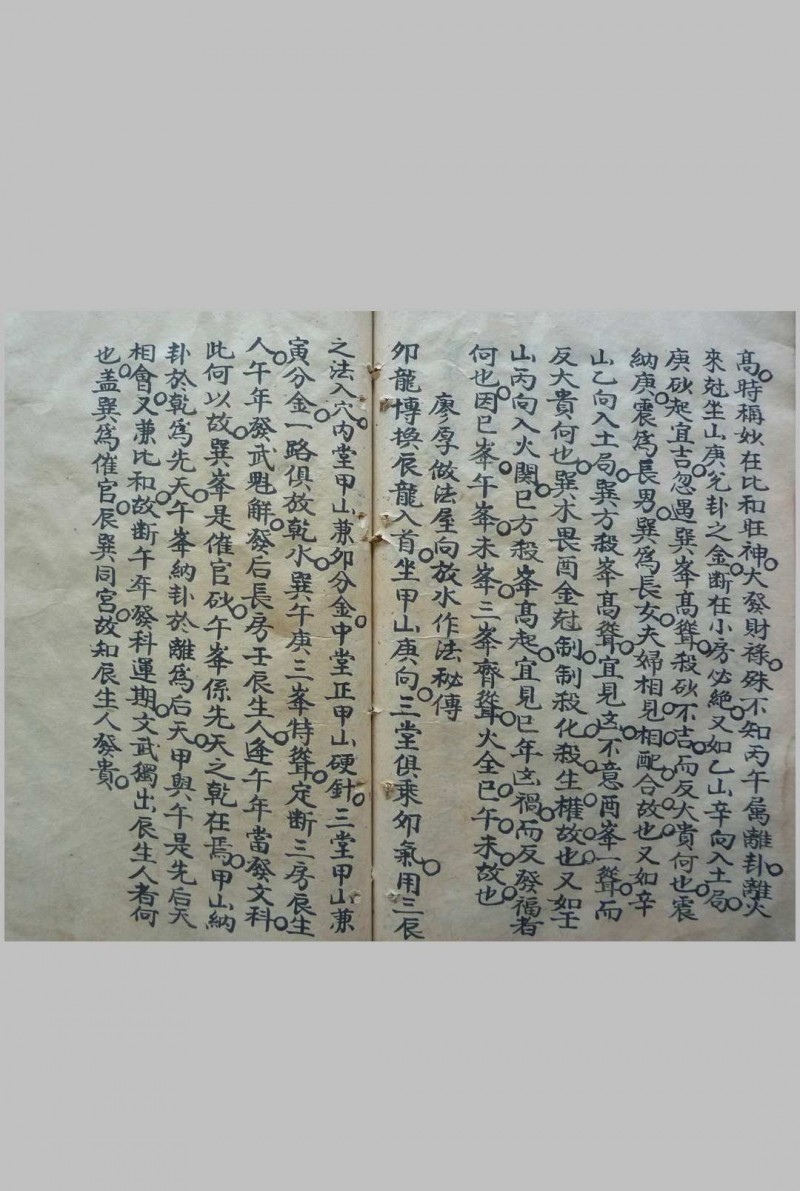 高時稱妙在比和旺神大發財祿殊不知丙午属離卦離火
來尅坐山庚兊卦之金断在小房必絶又如乙山辛向入土局
庚砂起宜吉忽遇巽峯高聳殺砂不吉而反大貴何也震
納庚震爲長男巽爲長女夫婦相見相配合故也又如辛
山乙向入土局巽方殺峯高聳宜見凶不意酉峯一聳而
反大貴何也巽木畏酉金尅制制殺化殺生權故也又如壬
山丙向入火関巳方殺峯高起宜見巳年凶禍而反發福者
何也因巳峯午峯未峯三峯齊聳火全巳午未故也
廖厚做法屋向放水作法秘傳
夘龍博換辰龍入首坐甲山庚向三堂俱乘夘氣用三辰
之法入穴内堂甲山兼夘分金中堂正甲山硬針三堂甲山兼
寅分金一路俱放乾水巽午庚三峯特聳定断三房辰生
人午年發武魁解發后長房壬辰生人逢午年當發文科
此何以故巽峯是催官砂午峯係先天之乾在焉甲山納
卦於乾爲先天午峯納卦於離爲后天甲與午是先后天
相會又兼比和故断午年發科運期文武獨出辰生人者何
也盖巽爲催官辰巽同宮故知辰生人發貴